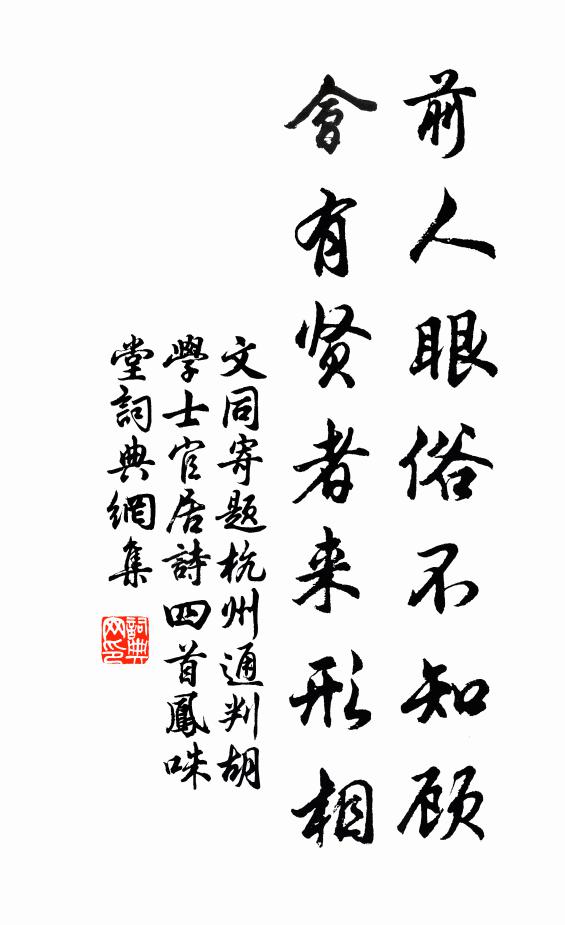 前人眼俗不知顾
會有贤者来形相
文同寄题杭州通判胡
學士官居詩四首鳳咮
堂詞典網集
詞典网印